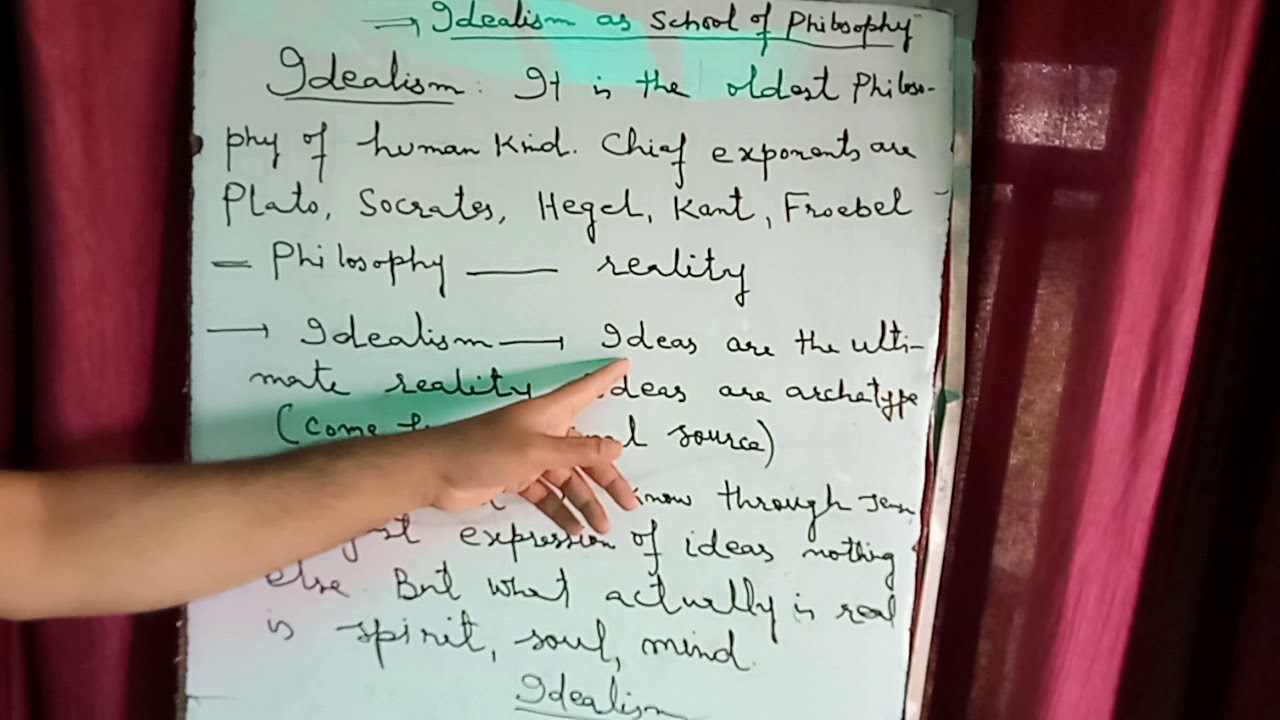 → Idealism as School of Philosophy
Idealism : It is the oldest Philoso-
phy of human Kind. Chief exponents are
Plato, Socrates, Hegel, Kant, Froebel
= Philosophy —— reality
→ Idealism → Ideas are the ulti-
mate reality Ideas are archetype
(Come source)
know through
expression of ideas nothing
else. But what actually is real
is spirit, soul, mind.
Idealism